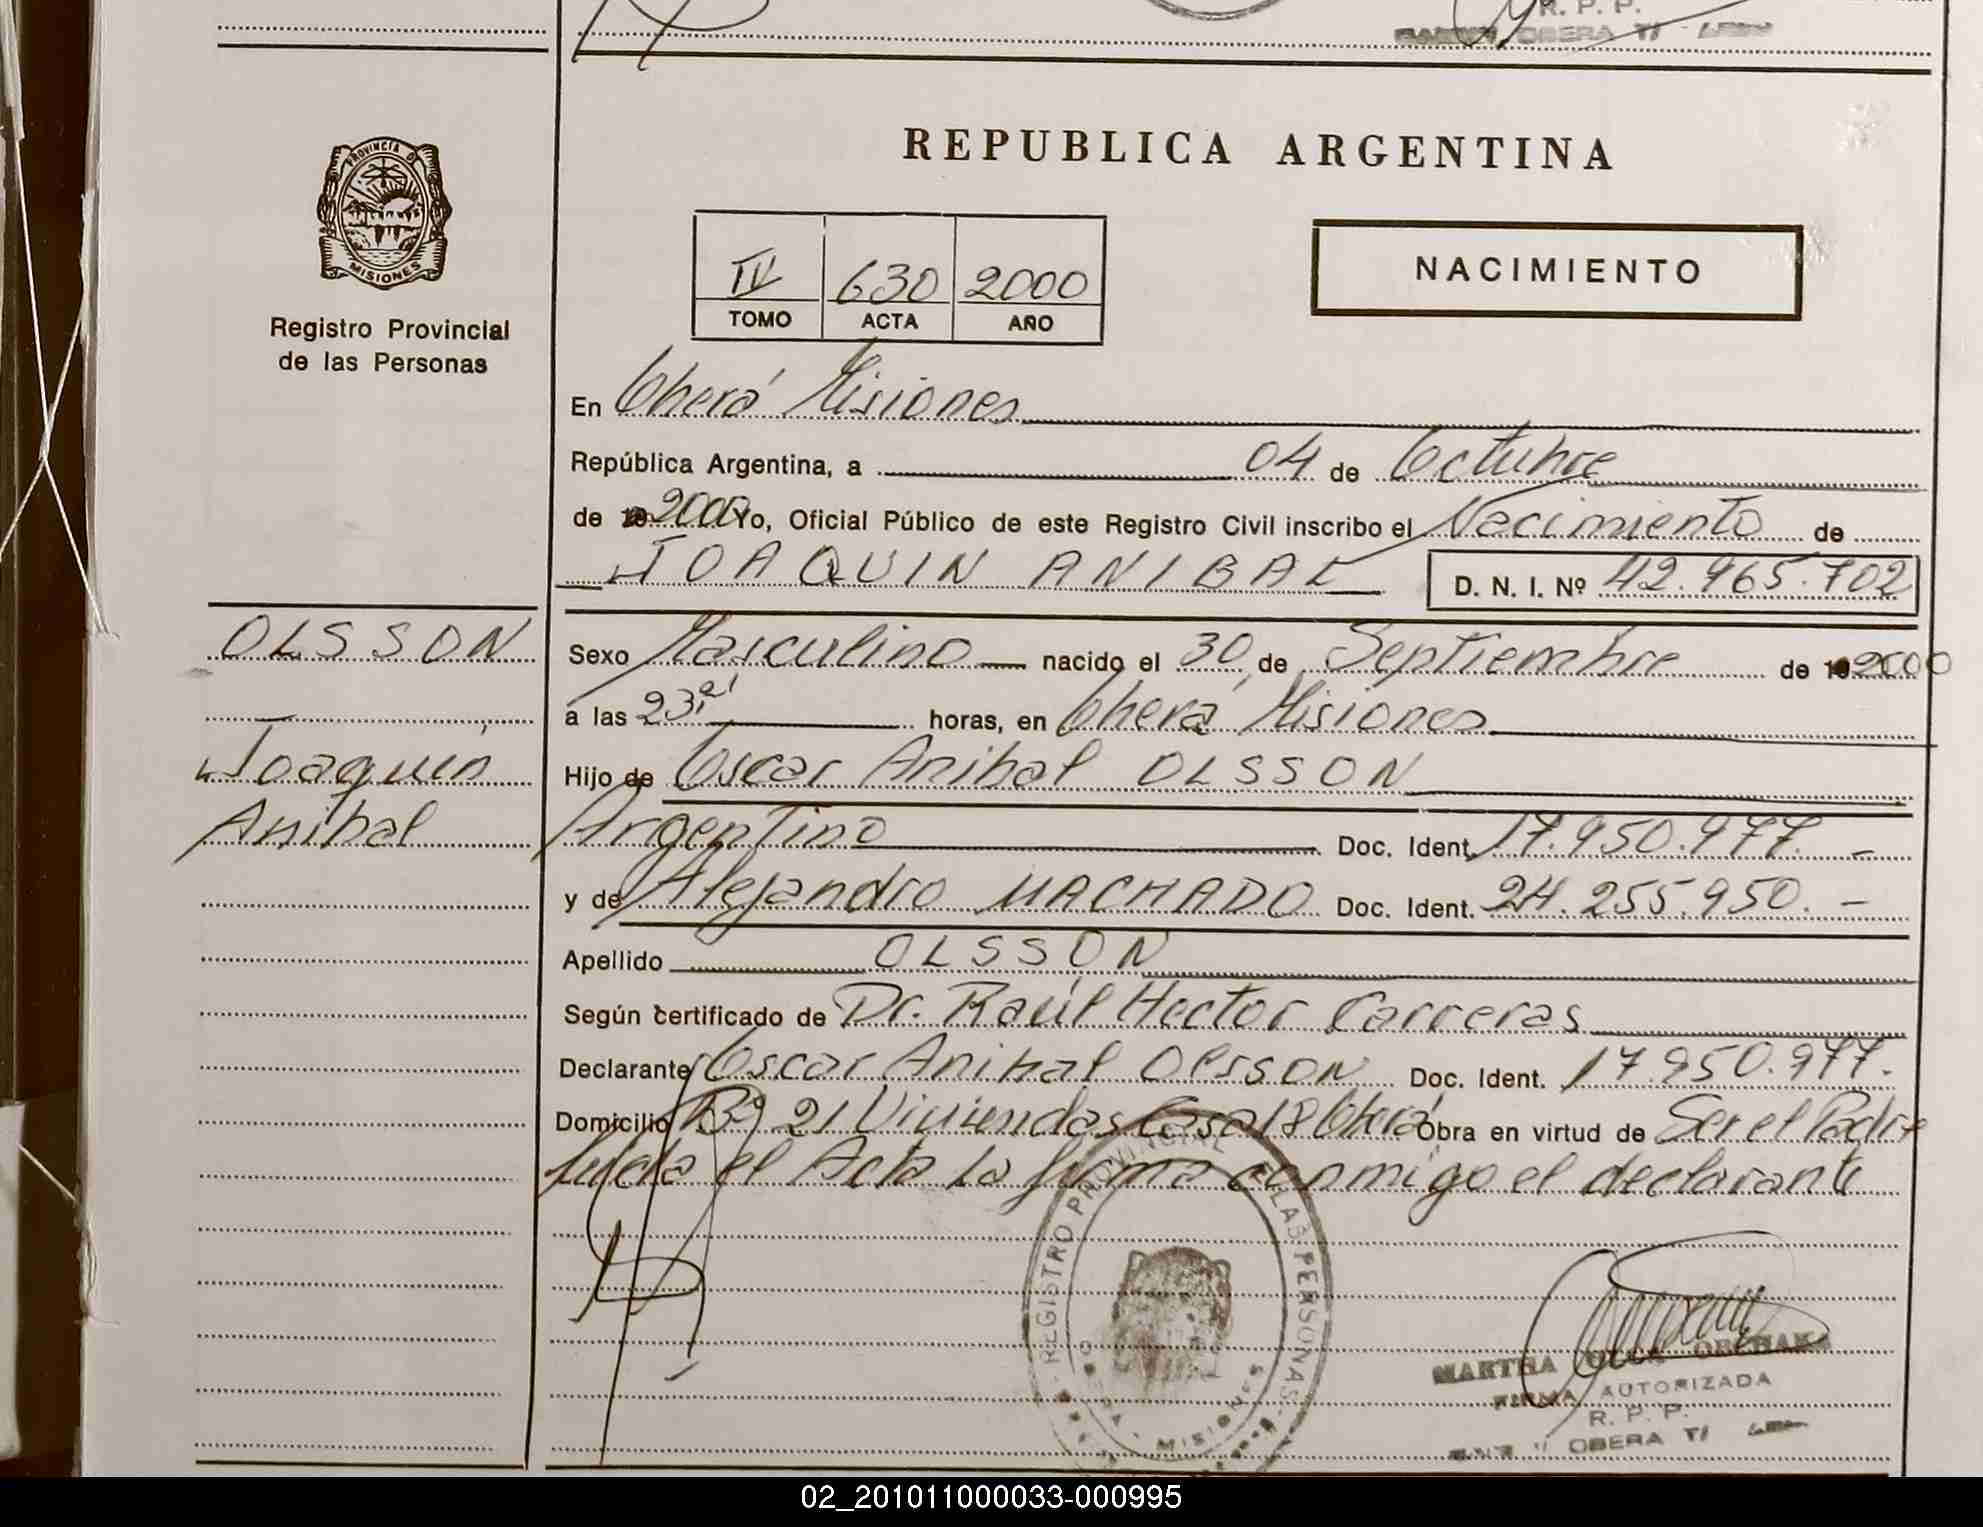 R. P. P.
OBERA
REPUBLICA ARGENTINA
PROVINCIA DE
MISIONES
Registro Provincial
de las Personas
NACIMIENTO
IV 630 2000
TOMO ACTA AÑO
En Oberá Misiones
República Argentina, a 04 de Octubre
de 2000 Yo, Oficial Público de este Registro Civil inscribo el Nacimiento de
JOAQUIN ANIBAL D. N. I. Nº 42.965.702
OLSSON
Joaquín
Anibal
Sexo Masculino nacido el 30 de Septiembre de 2000
a las 23,21 horas, en Oberá Misiones
Hijo de Oscar Anibal OLSSON
Argentino Doc. Ident. 17.950.977. -
y de Alejandro MACHADO Doc. Ident. 24.255.950. -
Apellido OLSSON
Según certificado de Dr. Raúl Hector Carreras
Declarante Oscar Anibal OLSSON Doc. Ident. 17.950.977.
Domicilio Bº 21 Viviendas Casa 18 Oberá Obra en virtud de Ser el Padre
el Acta la firma conmigo el declarante
REGISTRO PROVINCIAL DE LAS PERSONAS
MISIONES
MARTHA OLGA
FIRMA AUTORIZADA
R. P. P.
OBERA
02_201011000033-000995